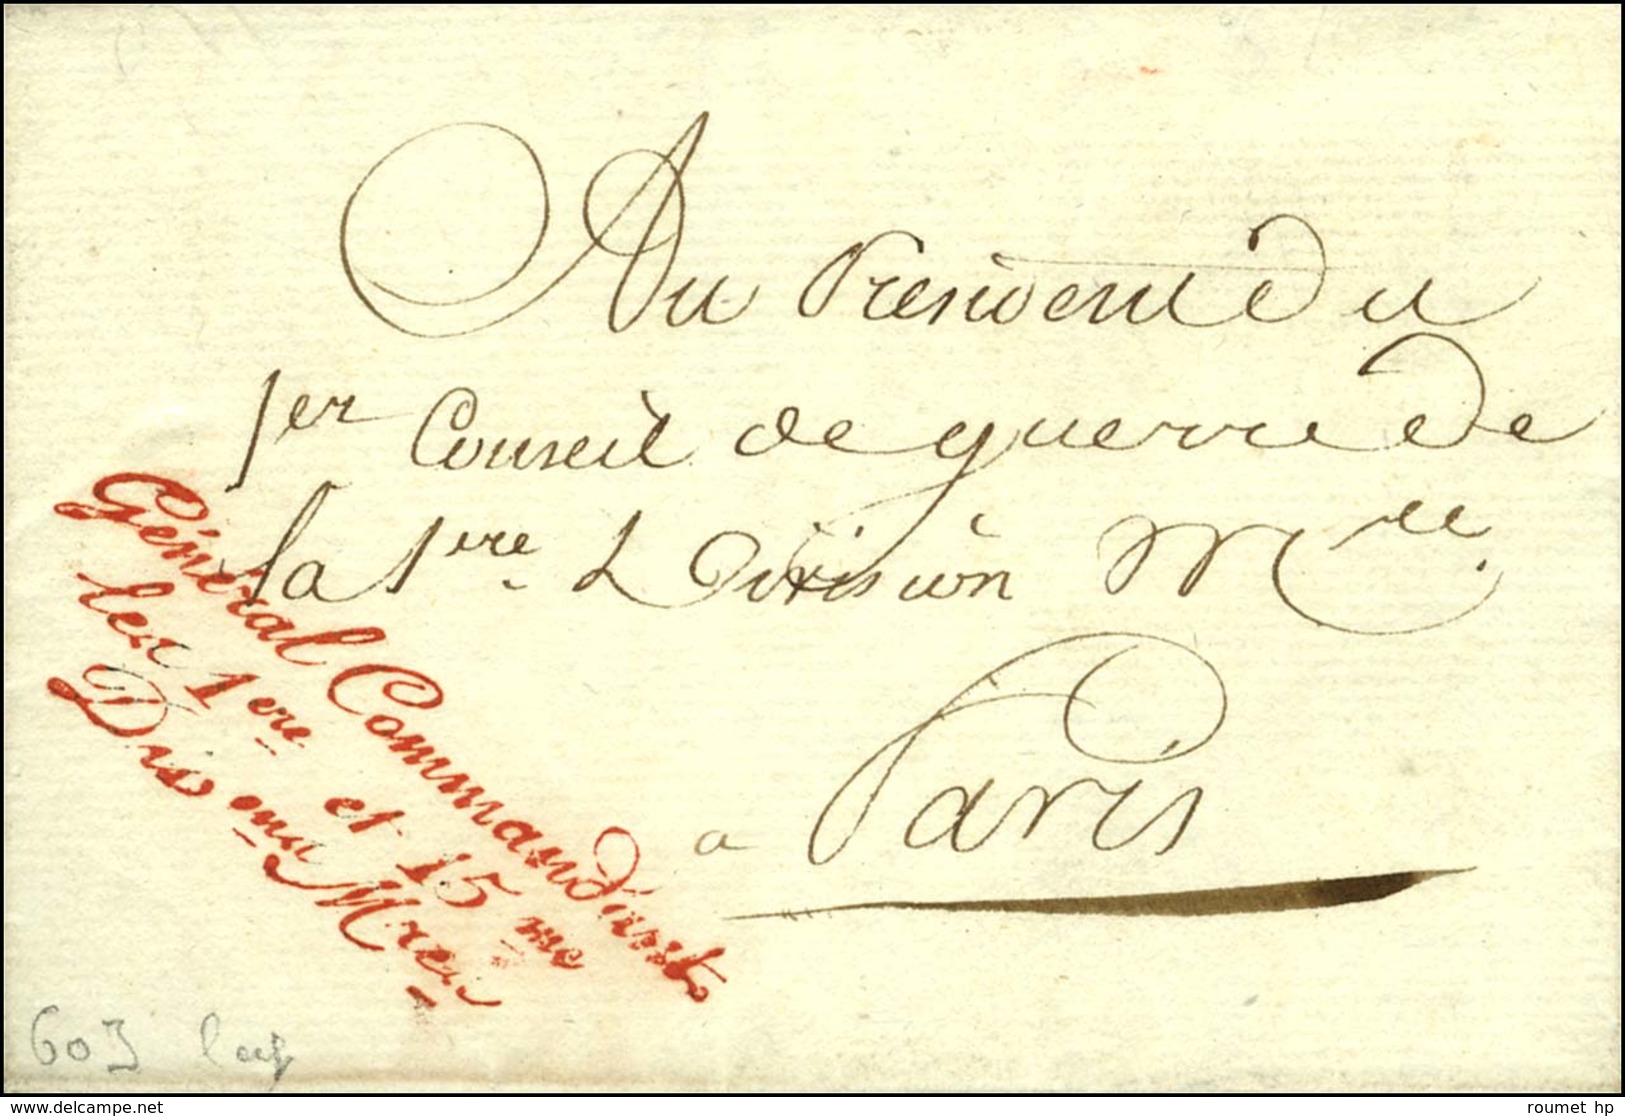 Au President du
1er Conseil de guerre de
la 1ere Division Mre
a Paris
Général Commandant
les 1ere et 15me
Divons Mres
603
www.delcampe.net
roumet hp